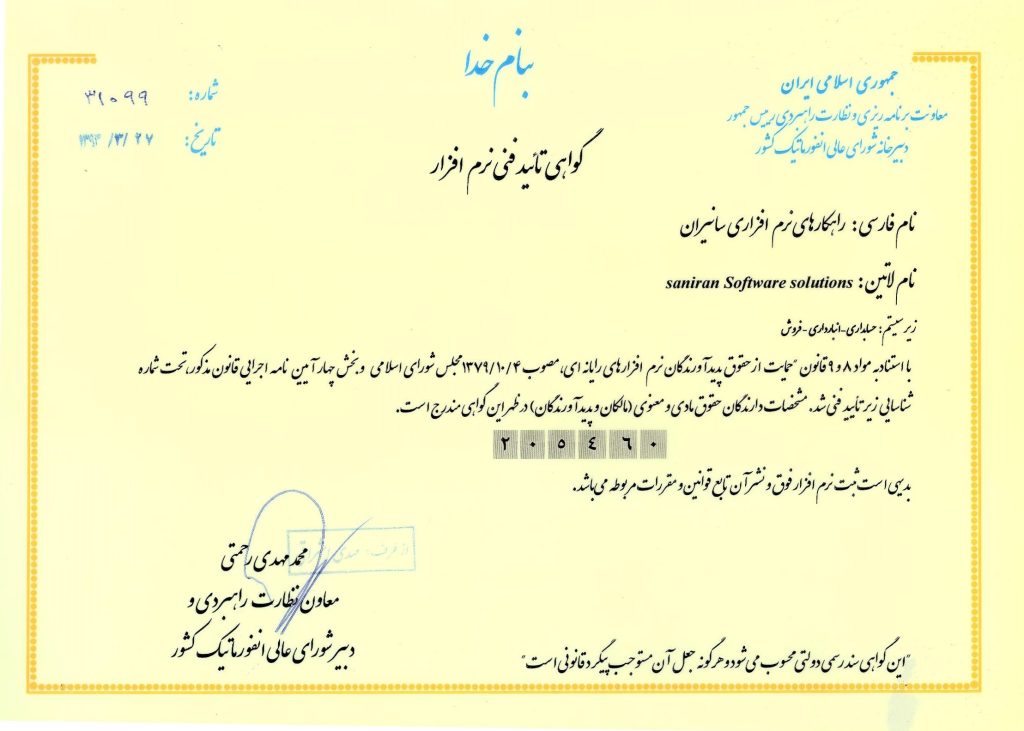 بنام خدا
جمهوری اسلامی ایران
معاونت برنامه ریزی و نظارت راهبردی رییس جمهور
دبیرخانه شورای عالی انفورماتیک کشور
شماره: ۳۱۰۹۹
تاریخ: ۱۳۹۴/۳/۲۷
گواهی تائید فنی نرم افزار
نام فارسی: راهکارهای نرم افزاری سانیران
نام لاتین: saniran Software solutions
زیر سیستم: حسابداری-انبارداری-فروش
با استناد به مواد ۸ و ۹ قانون "حمایت از حقوق پدیدآورندگان نرم افزارهای رایانه ای، مصوب ۱۳۷۹/۱۰/۴ مجلس شورای اسلامی و بخش چهار آیین نامه اجرایی قانون مذکور، تحت شماره
شناسایی زیر تایید فنی شد. مشخصات دارندگان حقوق مادی و معنوی (مالکان و پدیدآورندگان) در ظهر این گواهی مندرج است.
۲۰۵۴۶۰
بدیهی است ثبت نرم افزار فوق و نشر آن تابع قوانین و مقررات مربوطه می باشد.
از طرف: مهدی
محمد مهدی رحمتی
معاون نظارت راهبردی و
دبیر شورای عالی انفورماتیک کشور
"این گواهی سند رسمی دولتی محسوب می شود و هرگونه جعل آن مستوجب پیگرد قانونی است"